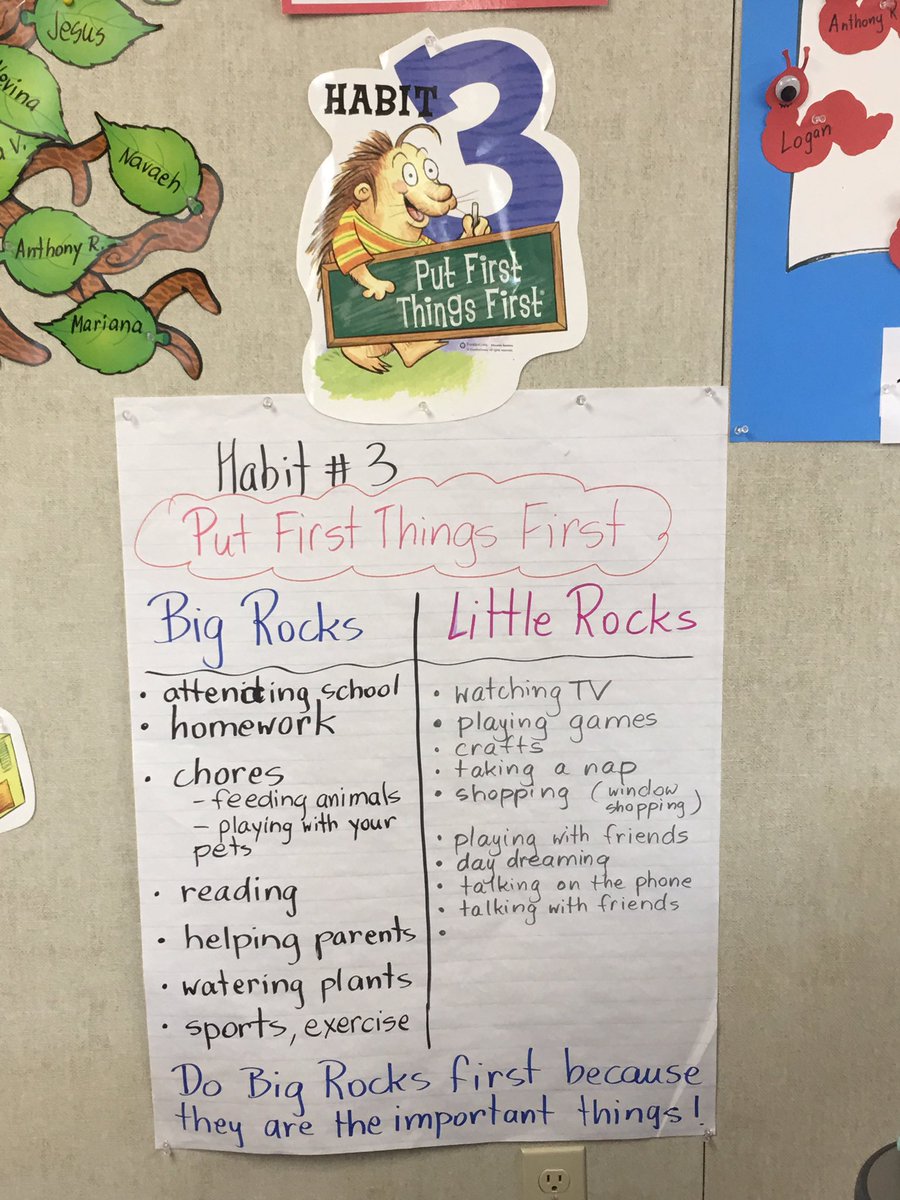 Jesus
Navaeh
Anthony R.
Mariana
HABIT 3
Put First
Things First
Anthony R
Logan
Habit # 3
Put First Things First
Big Rocks
• attending school
• homework
• chores
- feeding animals
- playing with your
pets
• reading
• helping parents
• watering plants
• sports, exercise
Little Rocks
• watching TV
• playing games
• crafts
• taking a nap
• shopping (window
shopping)
• playing with friends
• day dreaming
• talking on the phone
• talking with friends
•
Do Big Rocks first because
they are the important things!